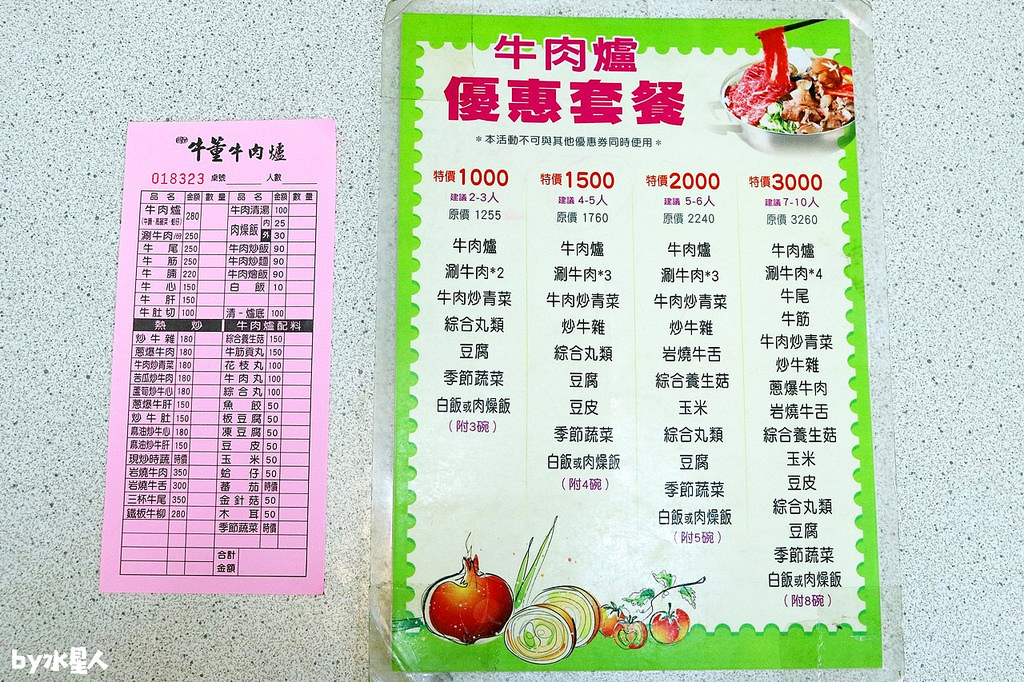 牛董牛肉爐
018323 桌號 人數
品名 金額 數量 品名 金額 數量
牛肉爐 280 牛肉清湯 100
肉燥飯 內 25
涮牛肉/份 250 外 30
牛尾 250 牛肉炒飯 90
牛筋 250 牛肉炒麵 90
牛腩 220 牛肉燴飯 90
牛心 150 白飯 10
牛肝 150
牛肚切 100 清-爐底 100
熱炒 牛肉爐配料
炒牛雜 180 綜合養生菇 150
蔥爆牛肉 180 牛筋貢丸 150
牛肉炒青菜 180 花枝丸 100
苦瓜炒牛肉 180 牛肉丸 100
蘆筍炒牛心 180 綜合丸 100
蔥爆牛肝 150 魚餃 50
炒牛肚 150 板豆腐 50
麻油炒牛心 180 凍豆腐 50
麻油炒牛肝 150 豆皮 50
現炒時蔬 時價 玉米 50
岩燒牛肉 350 蛤仔 50
岩燒牛舌 300 番茄 時價
三杯牛尾 350 金針菇 50
鐵板牛柳 280 木耳 50
季節蔬菜 時價
合計
金額
牛肉爐
優惠套餐
＊本活動不可與其他優惠券同時使用＊
特價1000
建議 2-3人
原價 1255
牛肉爐
涮牛肉*2
牛肉炒青菜
綜合丸類
豆腐
季節蔬菜
白飯或肉燥飯
（附3碗）
特價1500
建議 4-5人
原價 1760
牛肉爐
涮牛肉*3
牛肉炒青菜
炒牛雜
綜合丸類
豆腐
豆皮
季節蔬菜
白飯或肉燥飯
（附4碗）
特價2000
建議 5-6人
原價 2240
牛肉爐
涮牛肉*3
牛肉炒青菜
炒牛雜
岩燒牛舌
綜合養生菇
玉米
綜合丸類
豆腐
季節蔬菜
白飯或肉燥飯
（附5碗）
特價3000
建議 7-10人
原價 3260
牛肉爐
涮牛肉*4
牛尾
牛筋
牛肉炒青菜
炒牛雜
蔥爆牛肉
岩燒牛舌
綜合養生菇
玉米
豆皮
綜合丸類
豆腐
季節蔬菜
白飯或肉燥飯
（附8碗）
by水星人